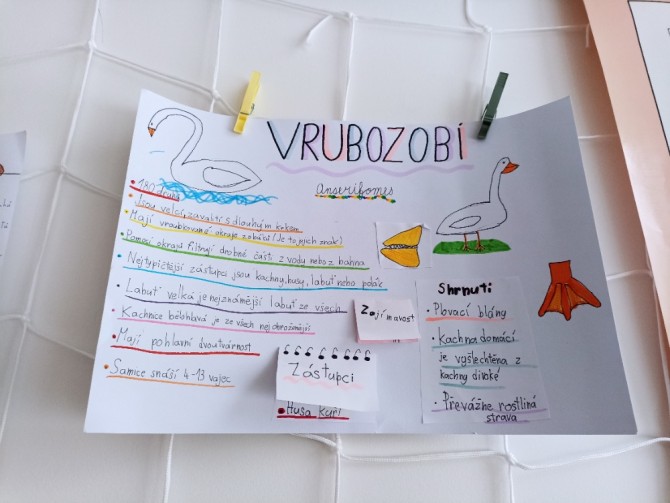 VRUBOZOBÍ
anserifomes
• 180 druhů
• Jsou velcí, zavalití s dlouhým krkem
• Mají vroubkované okraje zobáků (Je to jejich znak)
• Pomocí okrajů filtrují drobné části z vody nebo z bahna
• Nejtypičtější zástupci jsou kachny, husy, labuť nebo polák
• Labuť velká je nejznámější labuť ze všech
• Kachnice bělohlavá je ze všech nejohroženější
• Mají pohlavní dvoutvárnost
• Samice snáší 4-13 vajec
Zajímavost
Zástupci
• Husa Kuří
Shrnutí:
• Plovací blány
• Kachna domácí
je vyšlechtěna z
kachny divoké
• Převážně rostliná
strava